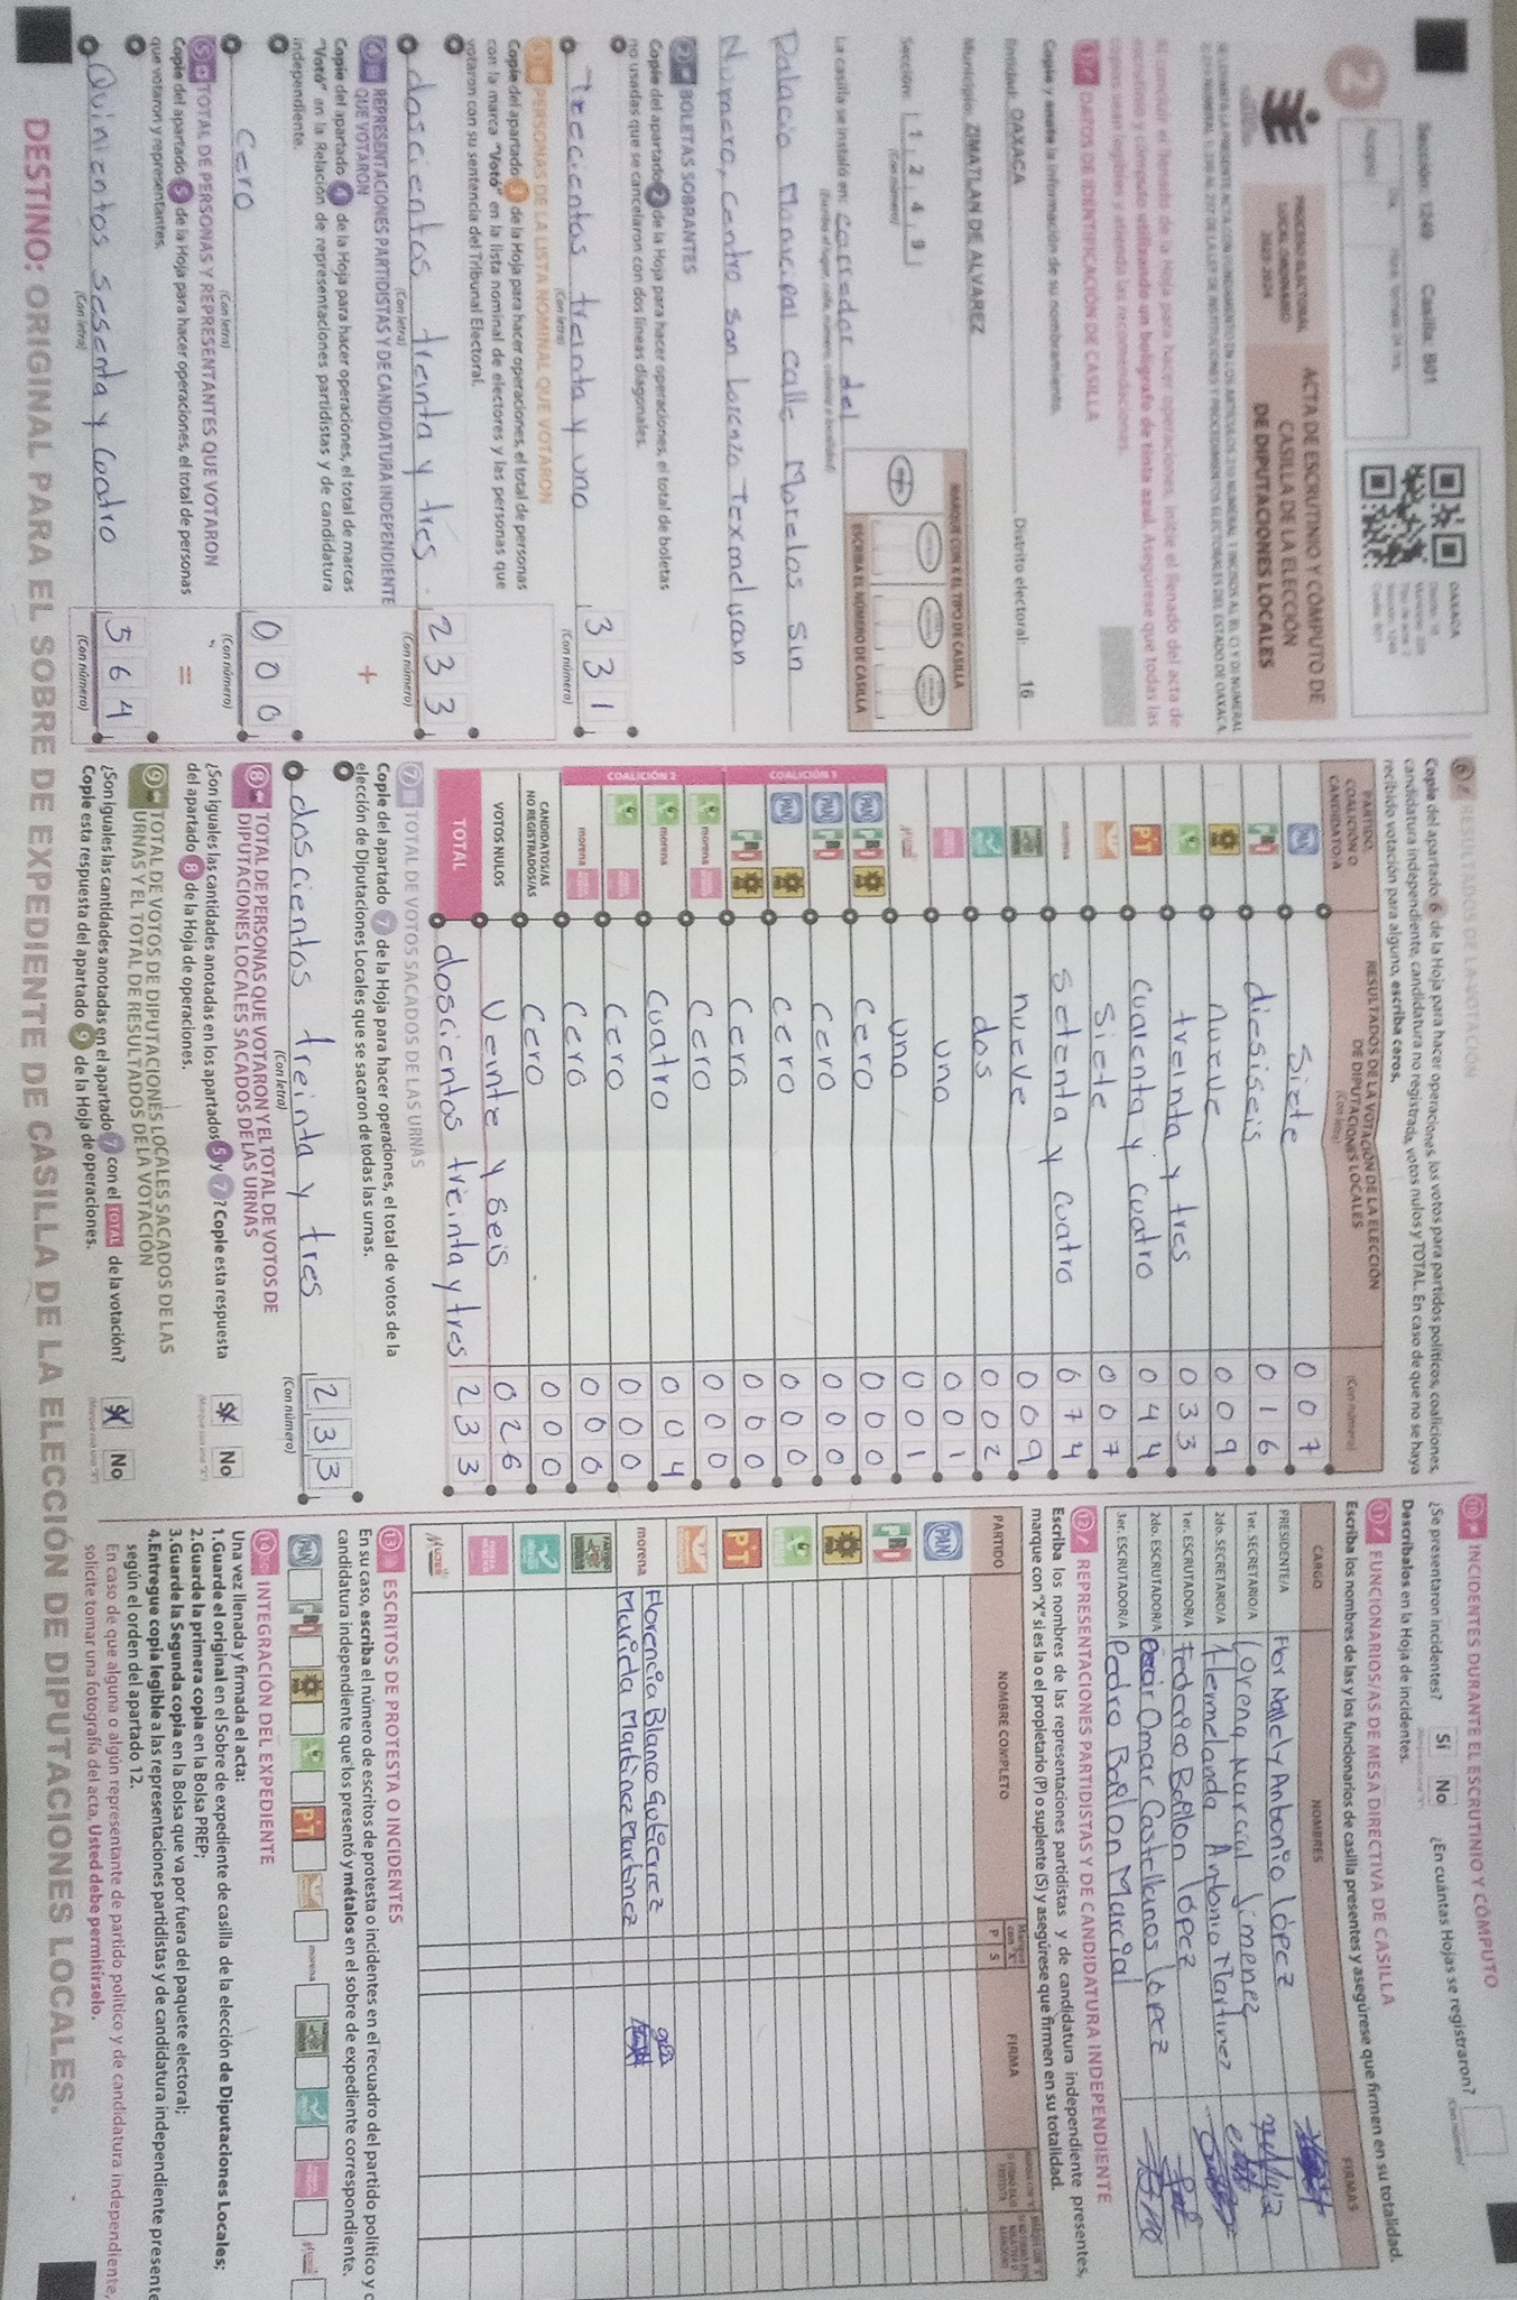 Sección: 1249 Casilla: B01
OAXACA
PROCESO ELECTORAL
LOCAL ORDINARIO
2023-2024
ACTA DE ESCRUTINIO Y CÓMPUTO DE
CASILLA DE LA ELECCIÓN
DE DIPUTACIONES LOCALES
Al concluir el llenado de la Hoja para hacer operaciones, inicie el llenado del acta de
escrutinio y cómputo utilizando un bolígrafo de tinta azul. Asegúrese que todas las
copias sean legibles y atienda las recomendaciones.
1 DATOS DE IDENTIFICACIÓN DE CASILLA
Copie y anote la información de su nombramiento.
Entidad: OAXACA Distrito electoral: 16
Municipio: ZIMATLAN DE ALVAREZ
Sección: 1 2 4 9
(Con número)
MARQUE CON X EL TIPO DE CASILLA
ESCRIBA EL NÚMERO DE CASILLA
La casilla se instaló en: Corredor del
(Escriba el lugar, calle, número, colonia o localidad)
Palacio Municipal calle Morelos sin
Numero, Centro San Lorenzo Texmelucan
2 BOLETAS SOBRANTES
Copie del apartado 2 de la Hoja para hacer operaciones, el total de boletas
no usadas que se cancelaron con dos líneas diagonales.
Trecientos treinta y uno 3 3 1
(Con letra) (Con número)
3 PERSONAS DE LA LISTA NOMINAL QUE VOTARON
Copie del apartado 3 de la Hoja para hacer operaciones, el total de personas
con la marca "Votó" en la lista nominal de electores y las personas que
votaron con su sentencia del Tribunal Electoral.
doscientos treinta y tres. 2 3 3
(Con letra) (Con número)
4 REPRESENTACIONES PARTIDISTAS Y DE CANDIDATURA INDEPENDIENTE
QUE VOTARON
+
Copie del apartado 4 de la Hoja para hacer operaciones, el total de marcas
"Votó" en la Relación de representaciones partidistas y de candidatura
independiente.
Cero 0 0 0
(Con letra) (Con número)
5 TOTAL DE PERSONAS Y REPRESENTANTES QUE VOTARON
=
Copie del apartado 5 de la Hoja para hacer operaciones, el total de personas
que votaron y representantes.
Quinientos sesenta y Coatro 5 6 4
(Con letra) (Con número)
6 RESULTADOS DE LA VOTACIÓN
Copie del apartado 6 de la Hoja para hacer operaciones, los votos para partidos políticos, coaliciones,
candidatura independiente, candidatura no registrada, votos nulos y TOTAL. En caso de que no se haya
recibido votación para alguno, escriba ceros.
PARTIDO, COALICIÓN O CANDIDATO/A
RESULTADOS DE LA VOTACIÓN DE LA ELECCIÓN
DE DIPUTACIONES LOCALES
(Con letra) (Con número)
PAN Siete 0 0 7
PRI diesiseis 0 1 6
PRD nueve 0 0 9
treinta y tres 0 3 3
PT cuarenta y cuatro 0 4 4
Siete 0 0 7
morena Setenta y cuatro 0 7 4
nueve 0 0 9
dos 0 0 2
uno 0 0 1
uno 0 0 1
COALICIÓN 1
PAN PRI PRD Cero 0 0 0
PAN PRI Cero 0 0 0
PAN PRD Cero 0 0 0
PRI PRD Cero 0 0 0
COALICIÓN 2
morena Cero 0 0 0
morena Cuatro 0 0 4
Cero 0 0 0
morena Cero 0 0 0
CANDIDATOS/AS NO REGISTRADOS/AS Cero 0 0 0
VOTOS NULOS Veinte y seis 0 2 6
TOTAL doscientos treinta y tres 2 3 3
7 TOTAL DE VOTOS SACADOS DE LAS URNAS
Copie del apartado 7 de la Hoja para hacer operaciones, el total de votos de la
elección de Diputaciones Locales que se sacaron de todas las urnas.
doscientos treinta y tres 2 3 3
(Con letra) (Con número)
8 TOTAL DE PERSONAS QUE VOTARON Y EL TOTAL DE VOTOS DE
DIPUTACIONES LOCALES SACADOS DE LAS URNAS
¿Son iguales las cantidades anotadas en los apartados 5 y 7? Copie esta respuesta
del apartado 8 de la Hoja de operaciones.
Sí No
9 TOTAL DE VOTOS DE DIPUTACIONES LOCALES SACADOS DE LAS
URNAS Y EL TOTAL DE RESULTADOS DE LA VOTACIÓN
¿Son iguales las cantidades anotadas en el apartado 7 con el TOTAL de la votación?
Copie esta respuesta del apartado 9 de la Hoja de operaciones.
Sí No
10 INCIDENTES DURANTE EL ESCRUTINIO Y CÓMPUTO
¿Se presentaron incidentes? Sí No ¿En cuántas Hojas se registraron?
Descríbalos en la Hoja de incidentes.
11 FUNCIONARIOS/AS DE MESA DIRECTIVA DE CASILLA
Escriba los nombres de las y los funcionarios de casilla presentes y asegúrese que firmen en su totalidad.
CARGO NOMBRES FIRMAS
PRESIDENTE/A Flor Nallely Antonio López
1er. SECRETARIO/A Lorena Marcial Jimenez
2do. SECRETARIO/A Hermelanda Antonio Martinez
1er. ESCRUTADOR/A Federico Bailon López
2do. ESCRUTADOR/A Omar Castellanos López
3er. ESCRUTADOR/A Pedro Bailon Marcial
12 REPRESENTACIONES PARTIDISTAS Y DE CANDIDATURA INDEPENDIENTE
Escriba los nombres de las representaciones partidistas y de candidatura independiente presentes,
marque con "X" si es la o el propietario (P) o suplente (S) y asegúrese que firmen en su totalidad.
PARTIDO NOMBRE COMPLETO P S FIRMA
PAN
PRI
PRD
PT
morena Florencia Blanco Gutierrez
Maricla Martinez Martinez
13 ESCRITOS DE PROTESTA O INCIDENTES
En su caso, escriba el número de escritos de protesta o incidentes en el recuadro del partido político y
candidatura independiente que los presentó y métalos en el sobre de expediente correspondiente.
PAN PRI PRD PT morena
14 INTEGRACIÓN DEL EXPEDIENTE
Una vez llenada y firmada el acta:
1.Guarde el original en el Sobre de expediente de casilla de la elección de Diputaciones Locales;
2.Guarde la primera copia en la Bolsa PREP;
3.Guarde la Segunda copia en la Bolsa que va por fuera del paquete electoral;
4.Entregue copia legible a las representaciones partidistas y de candidatura independiente presente
según el orden del apartado 12.
En caso de que alguna o algún representante de partido político y de candidatura independiente,
solicite tomar una fotografía del acta, Usted debe permitírselo.
DESTINO: ORIGINAL PARA EL SOBRE DE EXPEDIENTE DE CASILLA DE LA ELECCIÓN DE DIPUTACIONES LOCALES.